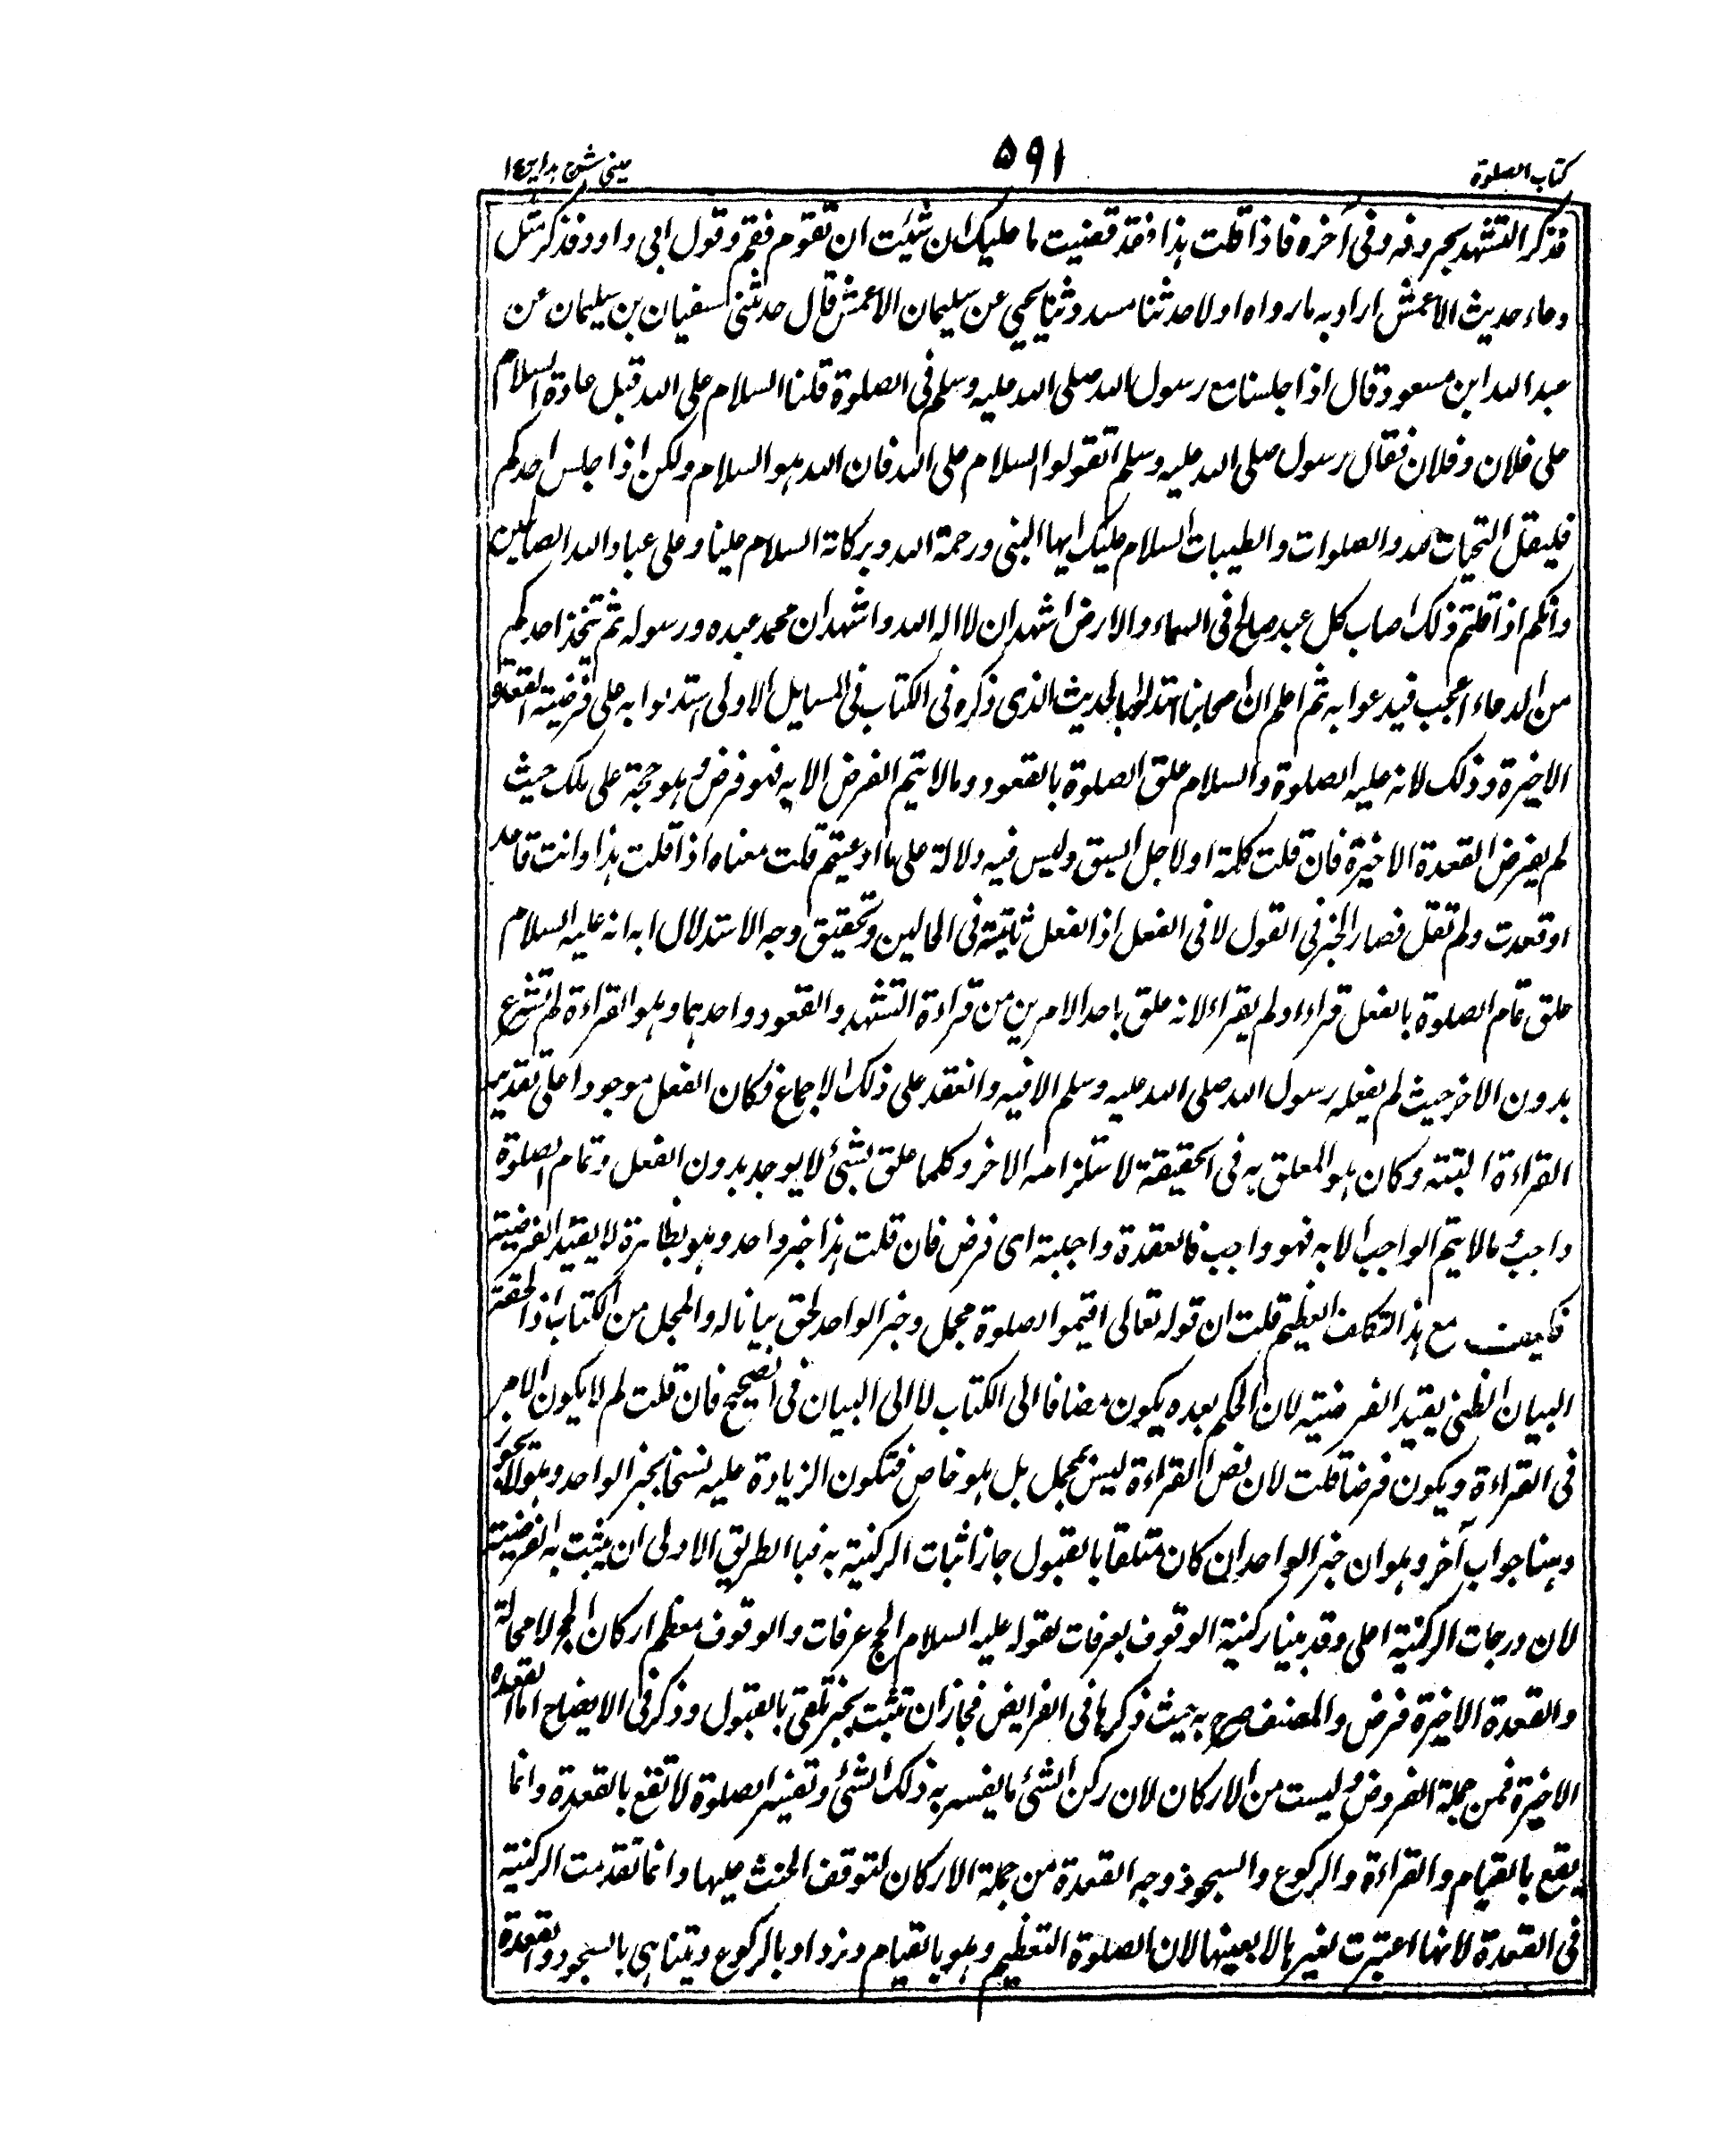 كتاب الصلوة
٥٩١
عینی شرح ہدایہ ج ١
فذكر التشهد بحروفه وفى آخره فاذا قلت هذا فقد قضيت ما عليك ان شئت ان تقوم فقم وقول ابى داود فذكر مثل
دعاء حديث الاعمش اراد به ما رواه اولا حدثنا مسدد ثنا يحيى عن سليمان الاعمش قال حدثنى سفيان بن سليمان عن
عبد الله ابن مسعود قال اذا جلسنا مع رسول الله صلى الله عليه وسلم فى الصلوة قلنا السلام على الله قبل عادة السلام
على فلان وفلان فقال رسول صلى الله عليه وسلم اتقولوا السلام على الله فان الله هو السلام ولكن اذا جلس احدكم
فليقل التحيات لله والصلوات والطيبات السلام عليك ايها النبى ورحمة الله وبركاته السلام علينا وعلى عباد الله الصالحين
وانكم اذا قلتم ذلك اصاب كل عبد صالح فى السماء والارض اشهد ان لا اله الله واشهد ان محمد عبده ورسوله ثم تتخذ احدكم
من الدعاء اعجب فيدعوا به ثم اعلم ان اصحابنا استدلوا بالحديث الذى ذكره فى الكتاب فى المسايل الاولى استدلوا به على فرضية القعدة
الاخيرة وذلك لانه عليه الصلوة والسلام علق الصلوة بالقعود وما لا يتم الفرض الا به فهو فرض وهو حجة على ملك حيث
لم يفرض القعدة الاخيرة فان قلت كلمة او لاجل السبق وليس فيه دلالة على ما ادعيتم قلت معناه اذا قلت هذا وانت قاعد
او قعدت ولم تقل فصار الخبر فى القول لا فى الفعل اذ الفعل ثابتة فى الحالين وتحقيق وجه الاستدلال به انه عليه السلام
علق تمام الصلوة بالفعل قراء او لم يقراء لانه علق باحد الامرين من قراءة التشهد والقعود واحدهما وهو القراءة لم تشرع
بدون الاخر حيث لم يفعله رسول الله صلى الله عليه وسلم الا فيه وانعقد على ذلك الاجماع فكان الفعل موجودا على تقدير
القراءة البتة وكان هو المعلق به فى الحقيقة لاستلزامه الاخر وكلما علق بشئ لا يوجد بدون الفعل وتمام الصلوة
واجب وما لا يتم الواجب الا به فهو واجب فالقعدة واجبة اى فرض فان قلت هذا خبر واحد وهو بظاهرة لا يفيد الفرضية
فكيف مع هذا التكلف العظيم قلت ان قوله تعالى اقيموا الصلوة مجمل وخبر الواحد لحق بيانا له والمجمل من الكتاب اذا لحقة
البيان الظنى يفيد الفرضية لان الحكم بعده يكون مضافا الى الكتاب لا الى البيان فى الصحيح فان قلت لم لا يكون الامر
فى القراءة ويكون فرضا قلت لان نص القراءة ليس بمجمل بل هو خاص فتكون الزيادة عليه نسخا بخبر الواحد وهو لا يجوز
وهنا جواب آخر وهو ان خبر الواحد ان كان متلقا بالقبول جاز اثبات الركنية به فبا الطريق الاولى ان يثبت به الفرضية
لان درجات الركنية اعلى وقد بينا ركنية الوقوف بعرفات لقوله عليه السلام الحج عرفات والوقوف معظم اركان الحج لا محالة
والقعدة الاخيرة فرض والمصنف صرح به حيث ذكرها فى الفرايض فجاز ان تثبت بخبر تلقى بالقبول وذكر فى الايضاح اما القعدة
الاخيرة فمن جملة الفروض وليست من الاركان لان ركن الشئ ما يفسر به ذلك الشئ وتفسير الصلوة لا تقع بالقعدة وانما
يقع بالقيام والقراءة والركوع والسجود وجه القعدة من جملة الاركان لتوقف الحنث عليها وانما تقدمت الركنية
فى القعدة لانها اعتبرت لغيرها لا بعينها لان الصلوة التعظيم وهو بالقيام ونزداد بالركوع ويتناهى بالسجود والقعدة